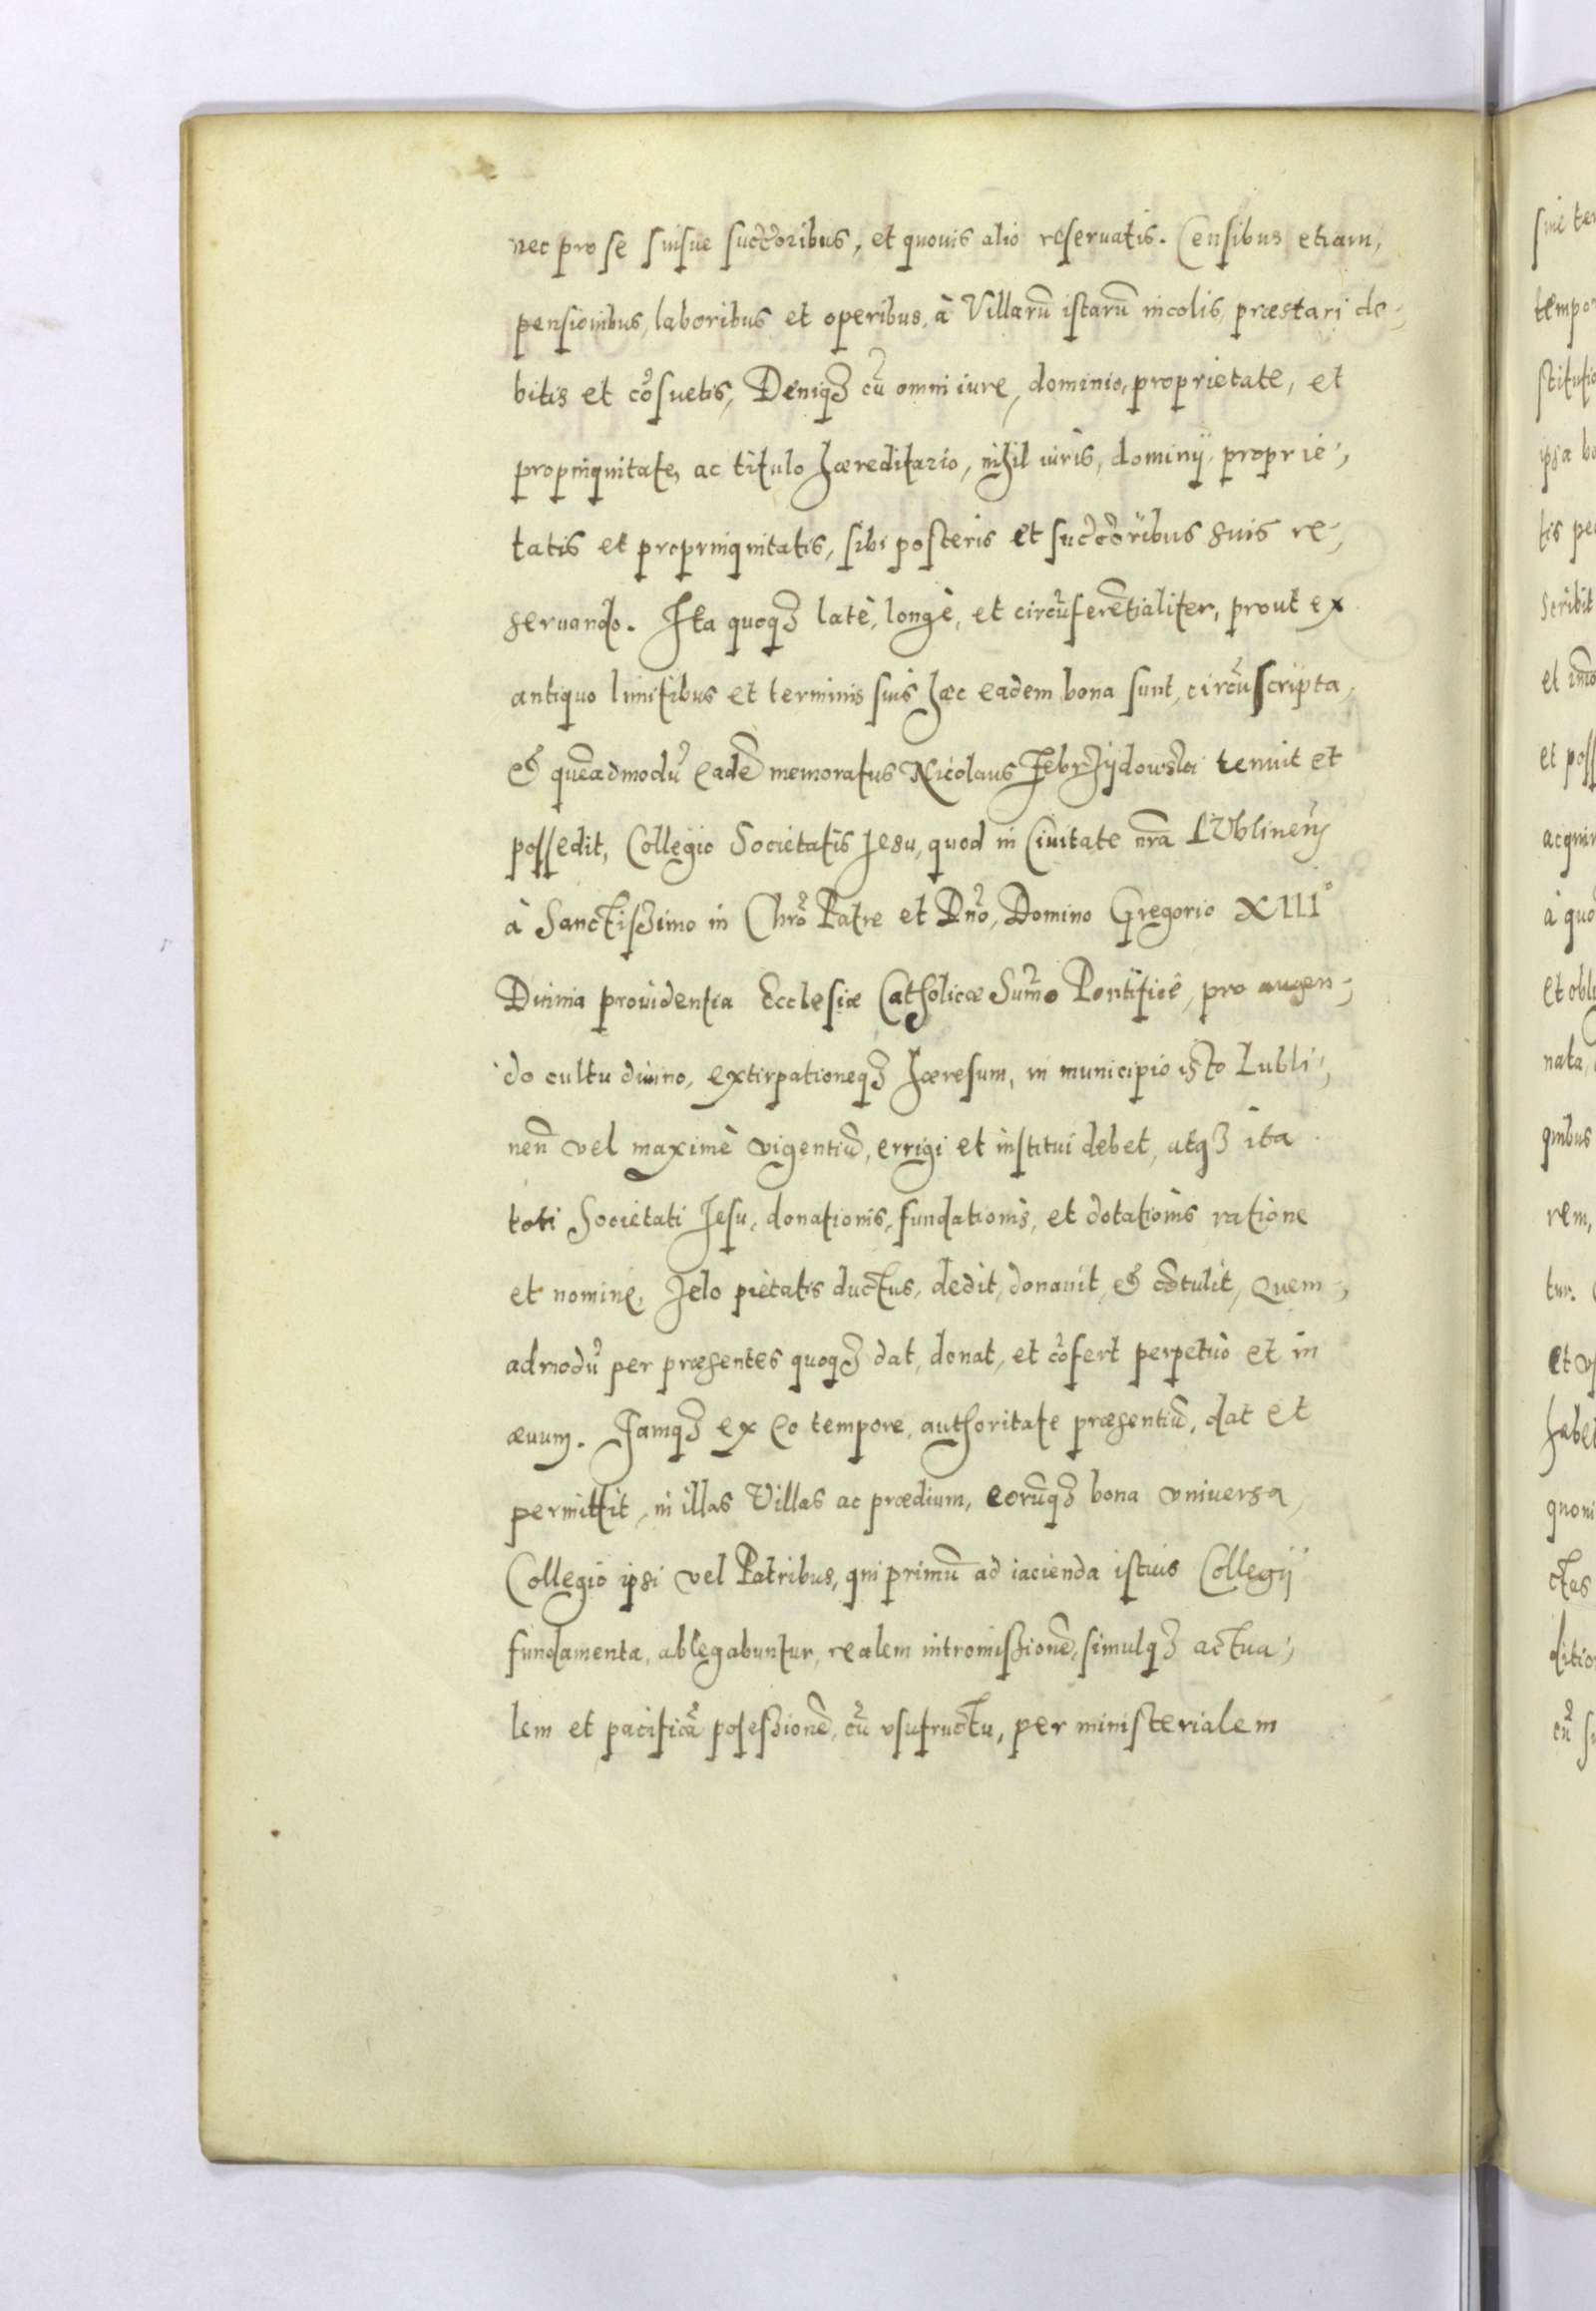 nec pro se suisue succ̃oribus, et quouis alio reseruatis. Censibus etiam,
pensionibus, laboribus et operibus, à Villarũ istarũ incolis, præstari de-
bitis et cõsuetis, Deniqꝫ cũ omni iure, dominio, proprietate, et
propinquitate, ac titulo hæreditario, nihil iuris, dominij proprie-
tatis et propinquitatis, sibi posteris et succ̃oribus suis re-
seruando. Ita quoqꝫ latè, longè, et circũferẽtialiter, prout ex
antiquo limitibus et terminis suis hæc eadem bona sunt, circũscripta,
& quẽadmodũ eadẽ memoratus Nicolaus Zebrzijdowski tenuit et
possedit, Collegio Societatis Jesu, quod in Ciuitate nr̃a LVblineñ
à Sanctissimo in Chr̃o Patre et Dño, Domino Gregorio XIII°
Diuina prouidentia Ecclesiæ Catholicæ Sum̃o Pontifice, pro augen-
do cultu diuino, extirpationeqꝫ hæresum, in municipio isto Lubli-
neñ vel maximè vigentiũ, errigi et institui debet, atqꝫ ita
toti Societati Jesu, donationis, fundationis, et dotationis ratione
et nomine, Zelo pietatis ductus, dedit, donauit, & cõtulit, Quem-
admodũ per præsentes quoqꝫ dat, donat, et cõfert perpetuò et in
æuum. Jamqꝫ ex eo tempore, authoritate præsentiũ, dat et
permittit, in illas Villas ac prædium, eorũqꝫ bona vniuersa,
Collegio ipsi vel Patribus, qui primũ ad iacienda istius Collegij
fundamenta, ablegabuntur, realem intromissionẽ, simulqꝫ actua-
lem et pacificã posessionẽ, cũ vsufructu, per ministerialem